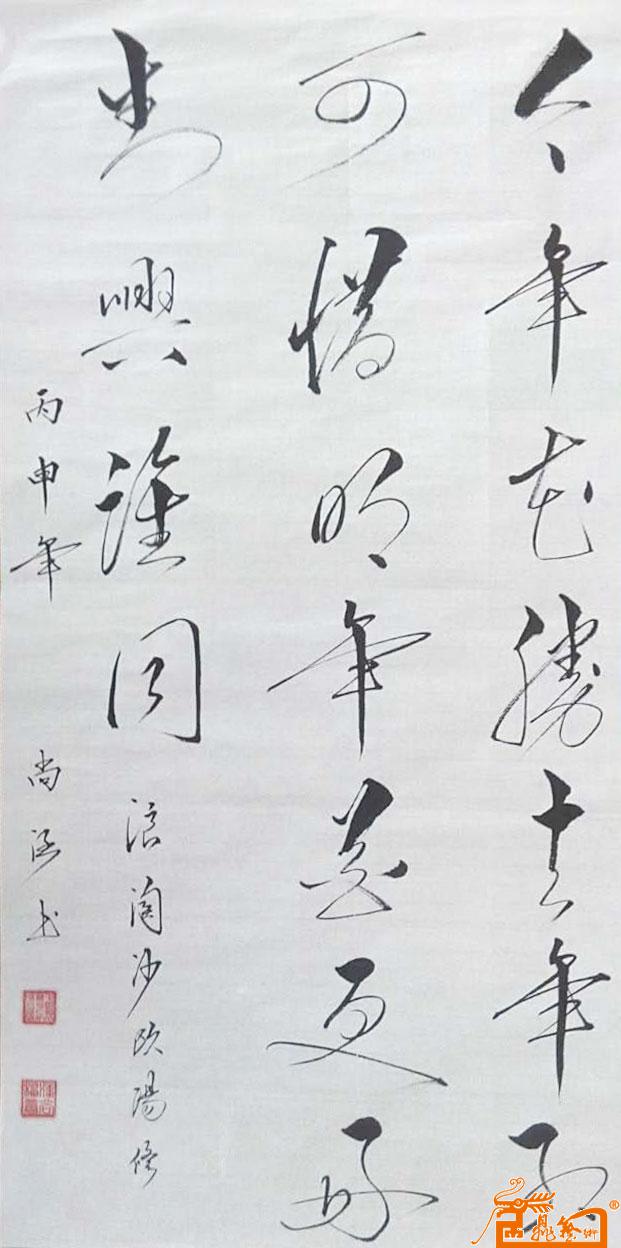 今年花勝去年紅
可惜明年花更好
知與誰同
浪淘沙欧陽修
丙申年 尚 书